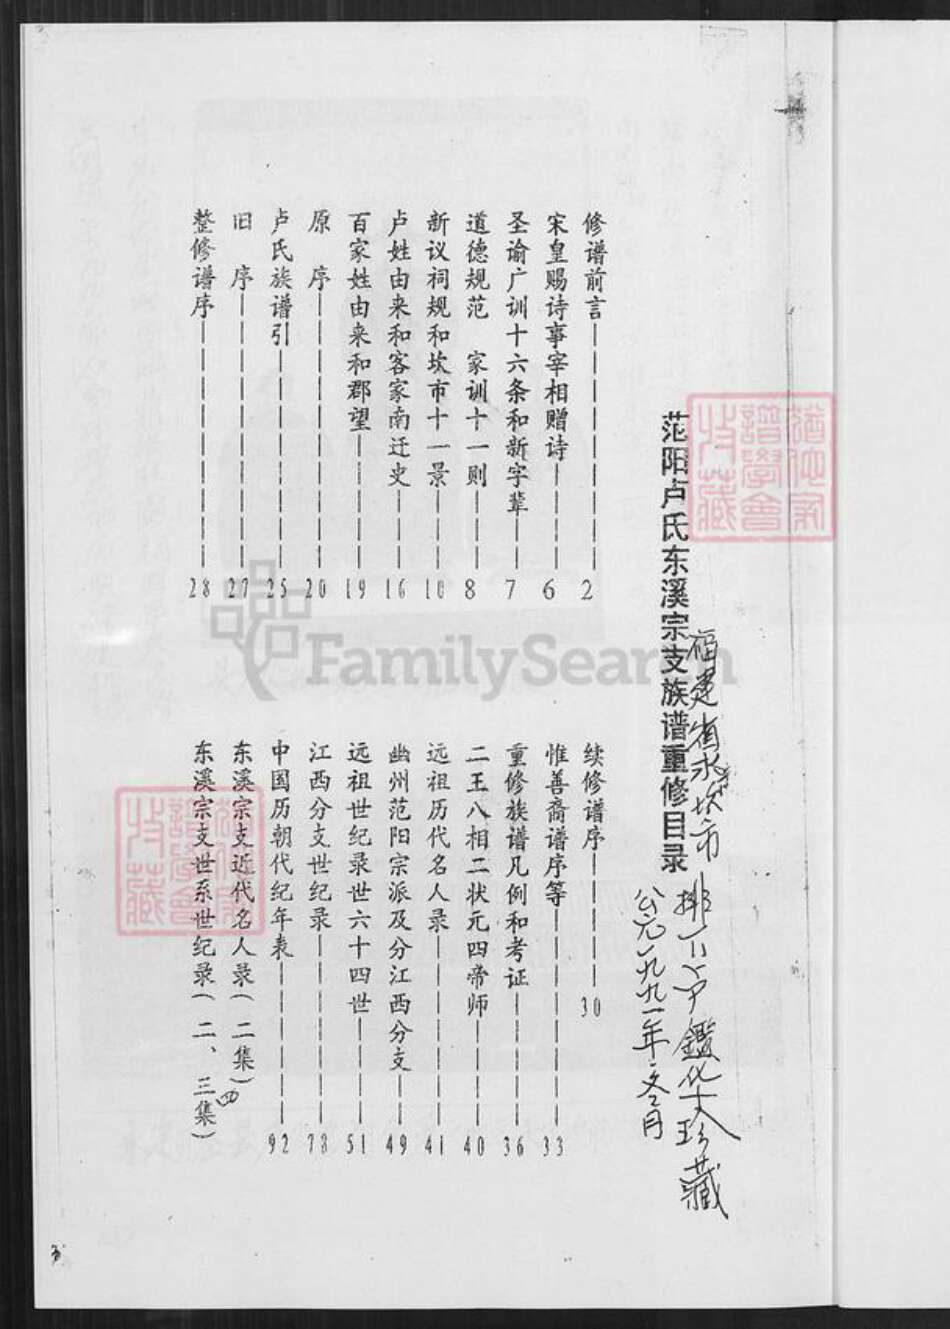 范阳卢氏东溪宗支族谱重修目录
福建省永
坎市
鑑华
珍藏
公元一九九一年冬月
修谱前言 2
宋皇赐诗事宰相赠诗 6
圣谕广训十六条和新字辈 7
道德规范 家训十一则 8
新议祠规和坎市十一景 10
卢姓由来和客家南迁史 16
百家姓由来和郡望 19
原 序 20
卢氏族谱引 25
旧 序 27
整修谱序 28
续修谱序 30
惟善裔谱序等 33
重修族谱凡例和考证 36
二王八相二状元四帝师 40
远祖历代名人录 41
幽州范阳宗派及分江西分支 49
远祖世纪录世六十四世 51
江西分支世纪录 78
中国历朝代纪年表 92
东溪宗支近代名人录(二集)四
东溪宗支世系世纪录(二、三集)
FamilySearch
譜學會
收藏
譜學會
收藏